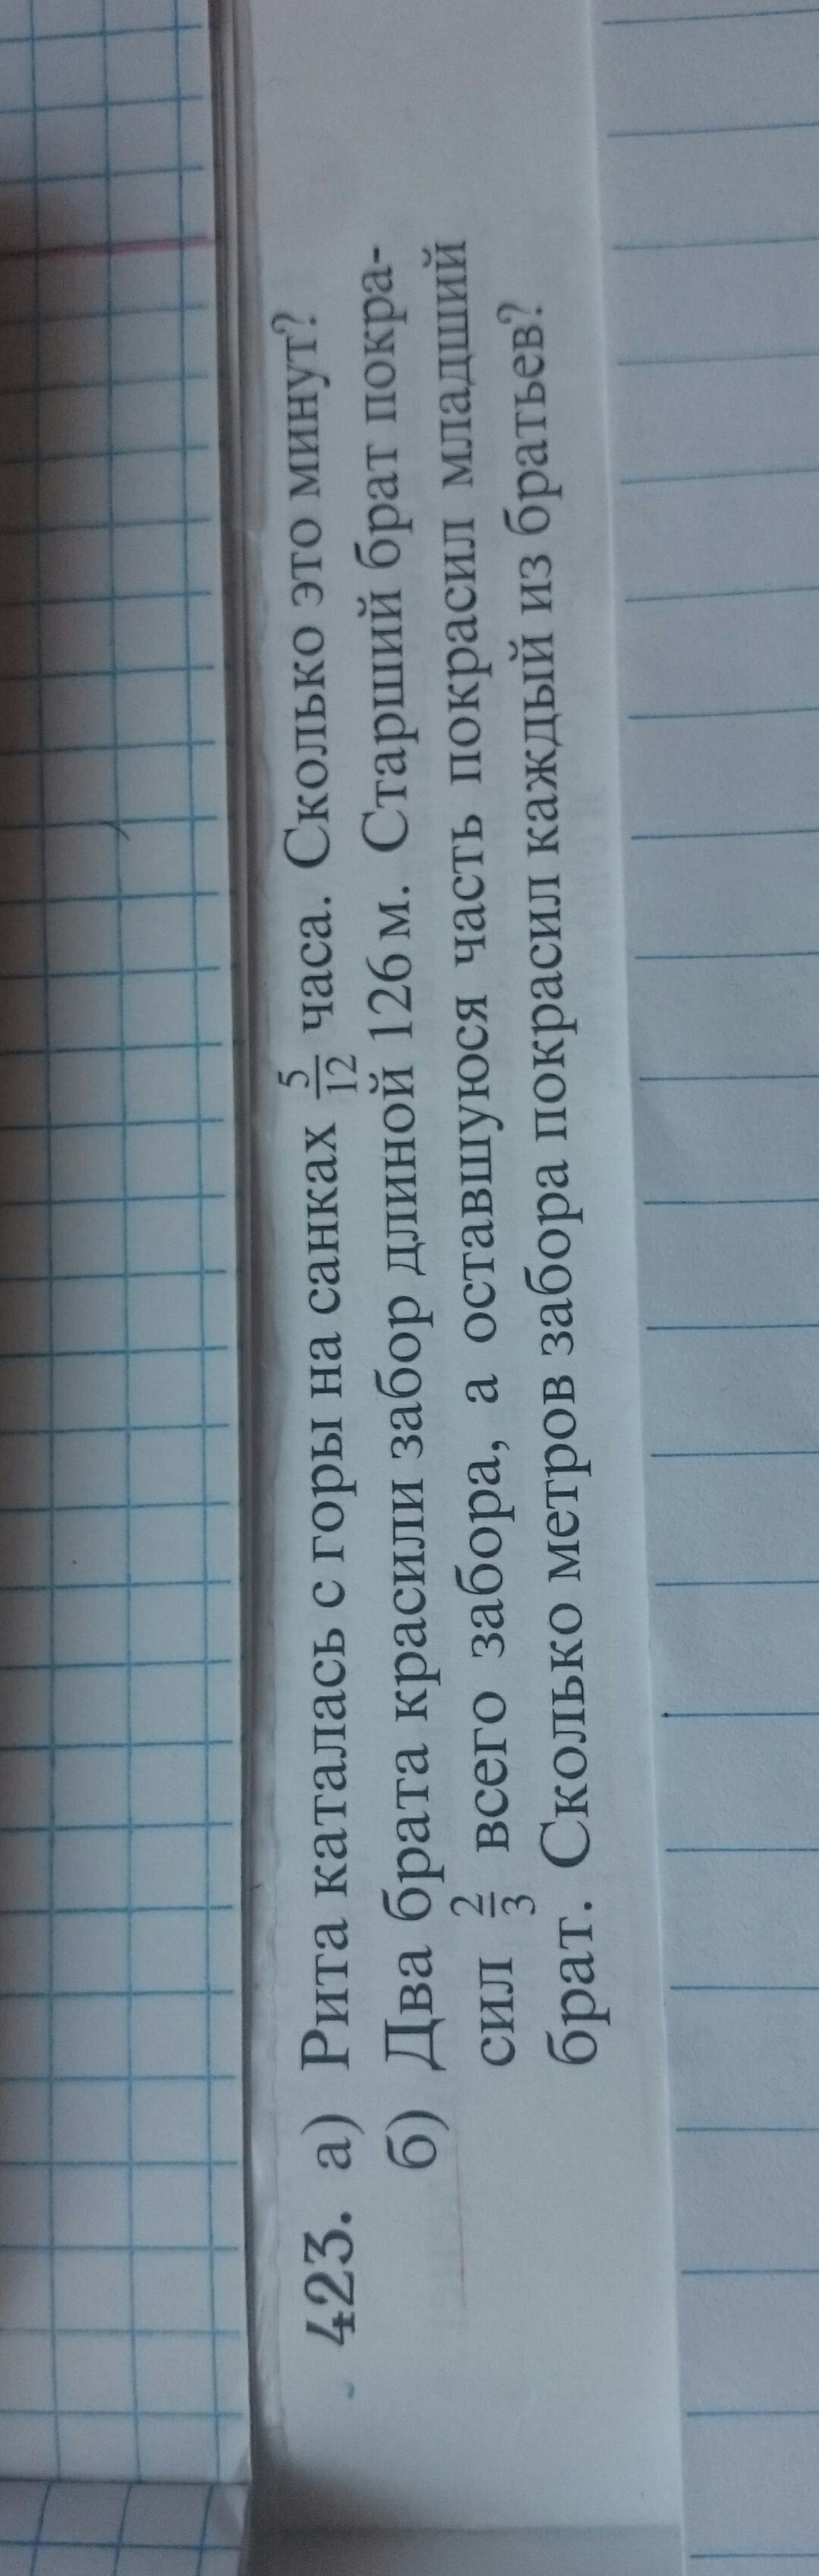 423. а) Рита каталась с горы на санках 5/12 часа. Сколько это минут?
б) Два брата красили забор длиной 126 м. Старший брат покра-
сил 2/3 всего забора, а оставшуюся часть покрасил младший
брат. Сколько метров забора покрасил каждый из братьев?